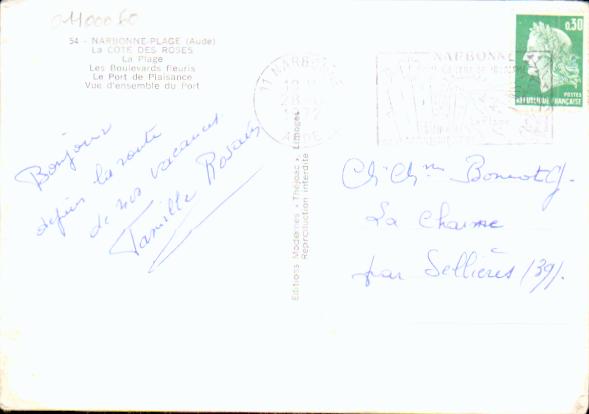 0110060
54 - NARBONNE-PLAGE (Aude)
La CÔTE DES ROSES
La Plage
Les Boulevards fleuris
Le Port de Plaisance
Vue d'ensemble du Port
Bonjour
depuis la route
de nos vacances
Famille
Editions Modernes « Théojac », Limoges
Reproduction interdite
11 NARBONNE
AUDE
NARBONNE
0,30
POSTES
REPUBLIQUE FRANÇAISE
La Charme
par Sellières (39).